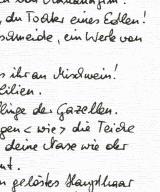 , du Tochter eines Edlen!
schmeide, ein Werk von
s ihr an Mischwein!
Lilien.
llinge der Gazellen.
gen < wie > die Teiche
deine Nase wie der
nt.
n gelöstes Haupthaar